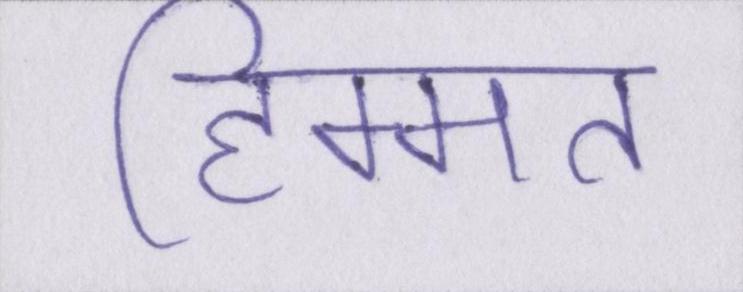 हिम्मत